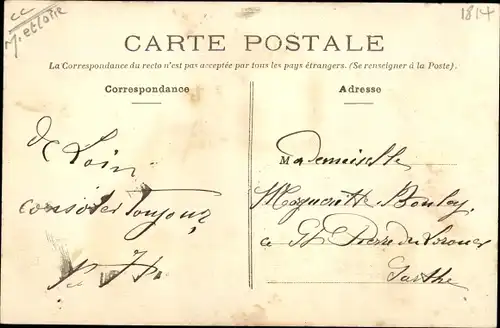 cc
M. et Loire
1814
CARTE POSTALE
La Correspondance du recto n'est pas acceptée par tous les pays étrangers. (Se renseigner à la Poste).
Correspondance
de Loin
consoler toujours
Adresse
Mademoiselle
Marguerite Bouley
a St Pierre du Lorouer
Sarthe